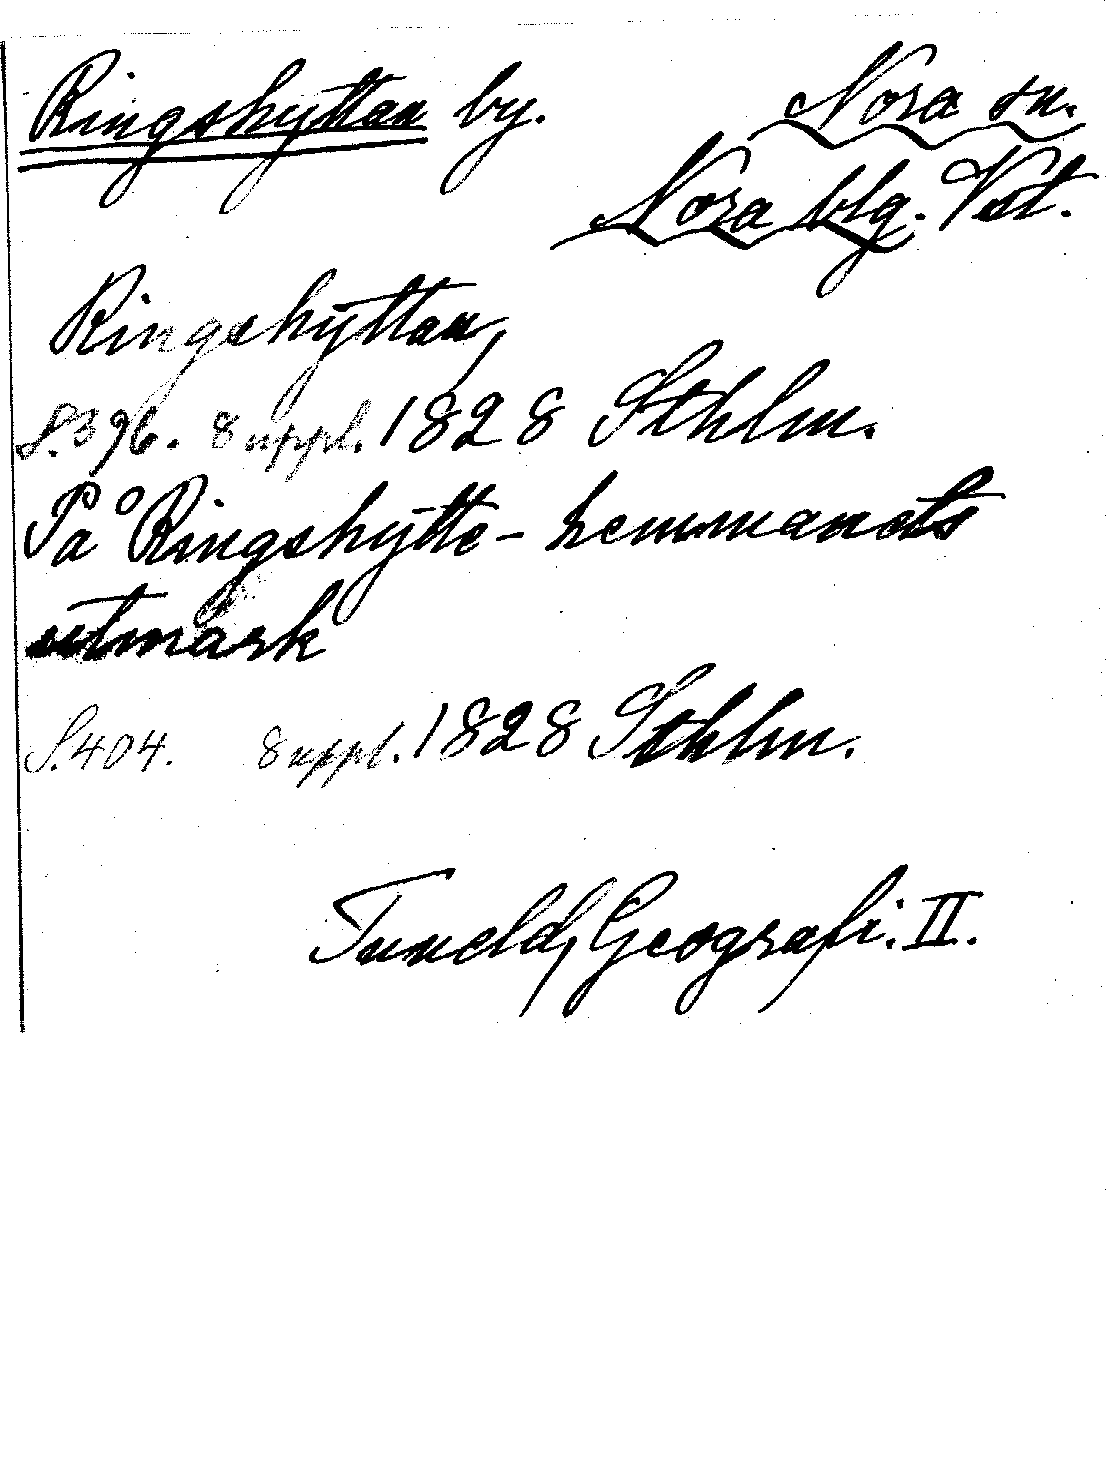 Ringshyttan by. Nora sn.
Nora blg. Vstl.
Ringshyttan,
S.396. 8 uppl. 1828 Sthlm.
På Ringshytte-hemmanets
utmark
S.404. 8 uppl. 1828 Sthlm.
Tuneld, Geografi. II.